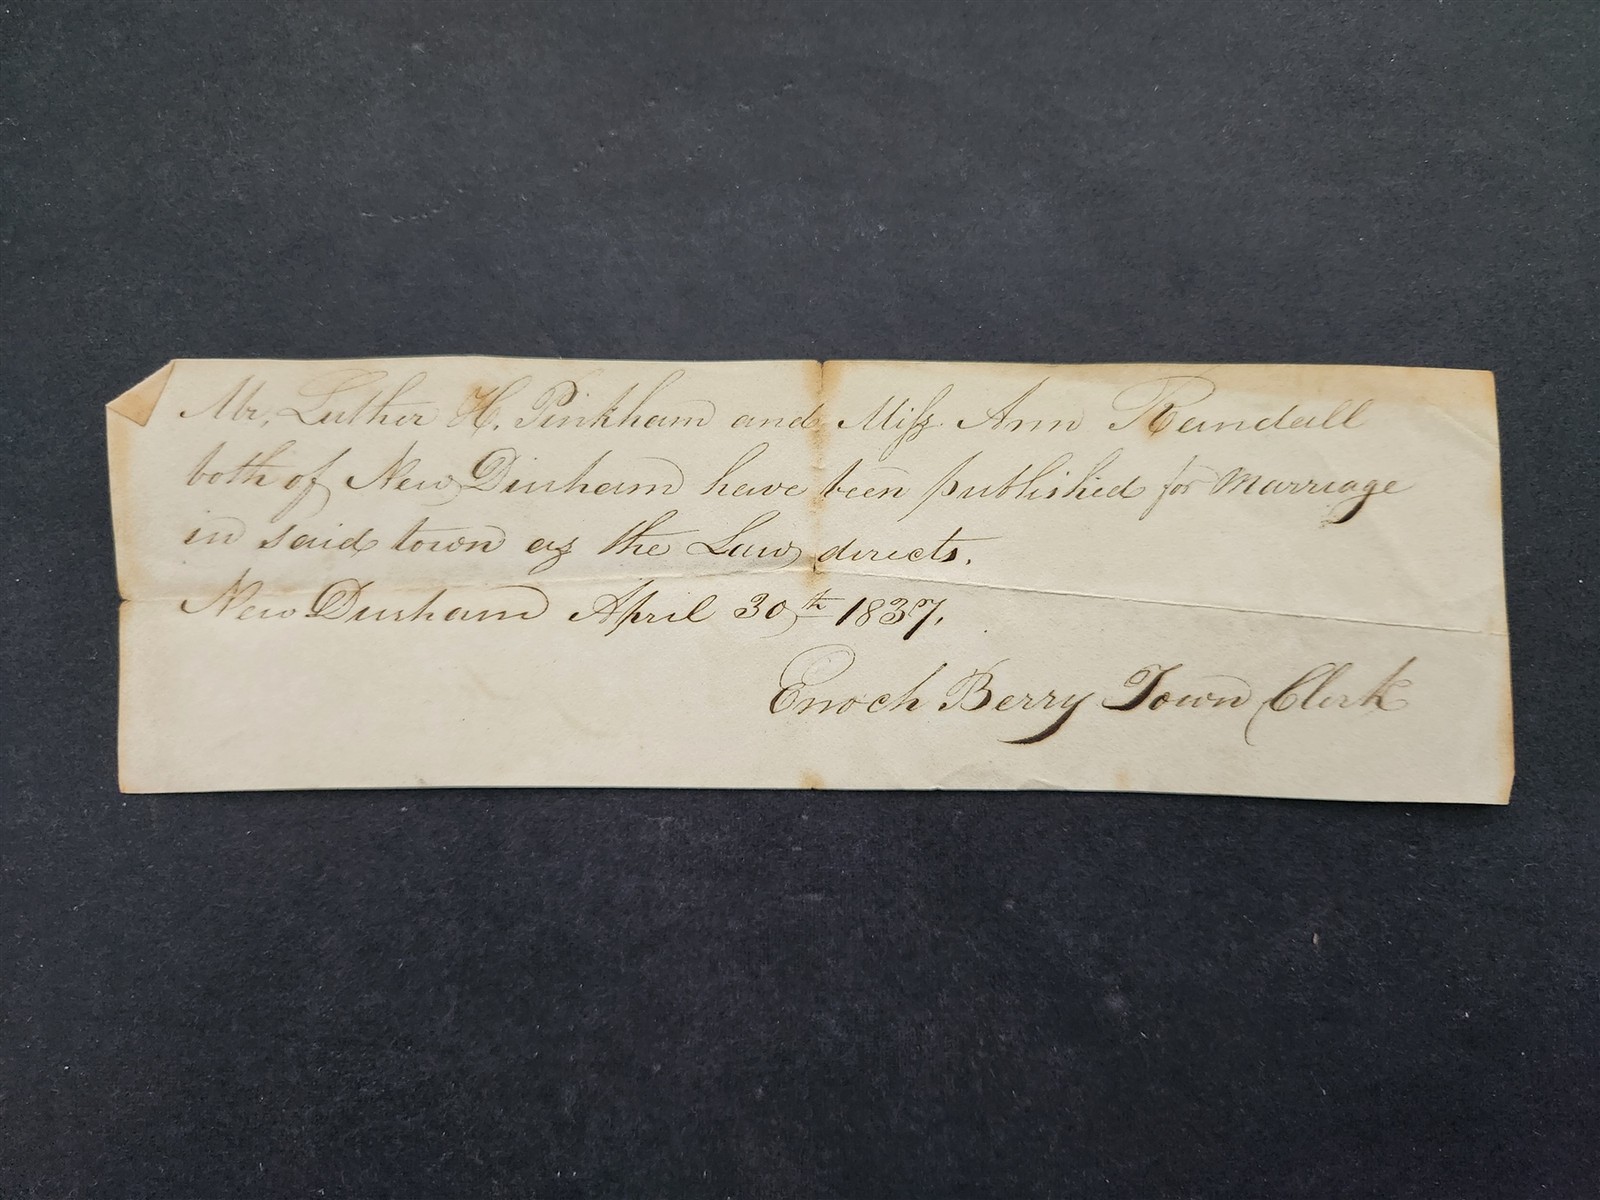 Mr. Luther H. Pinkham and Miss Ann Randall
both of New Durham have been published for marriage
in said town as the Law directs.
New Durham April 30th 1837.
Enoch Berry Town Clerk